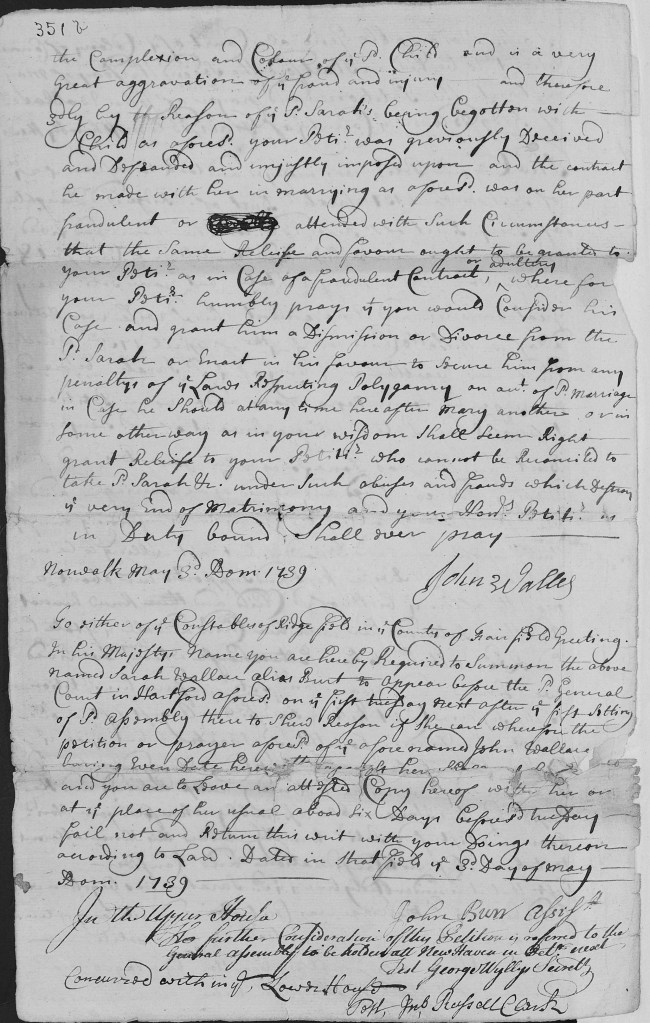 351 b
the Complexion and Colour of yͤ sᵈ. Child and is a very
Great aggravation of yͤ fraud and injury — and therefore
3dly by Reason of yͤ sᵈ. Sarah's being begotten with
Child as aforesᵈ. your Petiʳ. was greviously Deceived
and Defrauded and unjustly imposed upon and the contract
he made with her in marrying as aforesᵈ. was on her part
fraudulent or attended with Such Circumstances
that the Same Releife and favour ought to be granted to
your Petiʳ. as in Case of a fraudulent Contract, or adultery where for
your Petiʳ. humbly prays yͭ you would Consider his
Case and grant him a Dismission or Divorce from the
sᵈ. Sarah or Enact in his favour to Secure him from any
penaltys of yͤ Laws Respecting Polygamy on accᵗ. of sᵈ Marriage
in Case he Should at any time hereafter Mary another or in
Some other way as in your wisdom Shall Seem Right
grant Releife to your Petiʳ. who cannot be Reconciled to
take sᵈ. Sarah &c. under Such abuses and frauds which Destroy
yͤ very End of Matrimony and your Honʳˢ. Petiʳ. as
in Duty bound Shall ever pray
Norwalk May 3ᵈ. Dom. 1739
John Wallес
To either of yͤ Constables of Ridgefield in yͤ County of Fairfield Greeting.
In his Majestys Name You are hereby Required to Summon the above
named Sarah Wallace alias to appear before the sᵈ. General
Court in Hartford aforesᵈ. on yͤ first tuesday next after yͤ first Sitting
of sᵈ. Assembly there to Shew Reason if She can wherefore the
petition or prayer aforesᵈ. of yͤ afore named John Wallace
having Even Date herewith
and you are to Leave an attested Copy hereof with her or
at yͤ place of her usual aboad six Days before sᵈ tuesday
fail not and Return this writ with your Doings thereon
according to Law. Dated in yͤ 3ᵈ. Day of May
Dom. 1739
John Burr Assist
In the Upper House
The further Consideration of this Petition is referred to the
General Assembly to be holden att New Haven in Octᵒʳ next
Test George Wyllys Secretʸ
Concurred with in yͤ Lower House
Test, Jnᵒ Russell Clerk